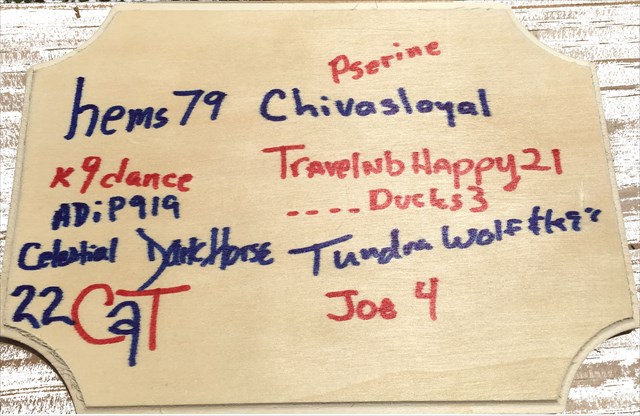 Pserine
hems79 Chivasloyal
K9dance TravelnbHappy21
ADiP919 ....Ducks3
Celestial DarkHorse Tundra Wolf
22CaT Joe 4